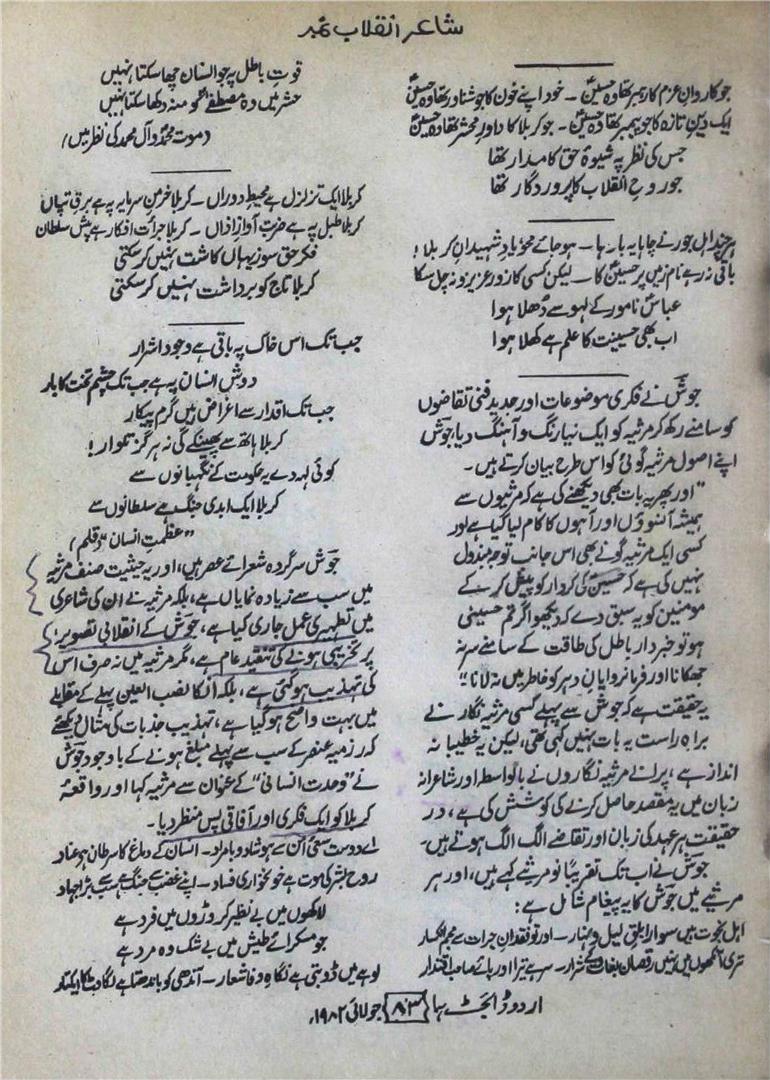 شاعر انقلاب نمبر
جو کاروانِ عزم کا رہبر تھا وہ حسینؑ ۔ خود اپنے خون کا جو شناور تھا وہ حسینؑ
ایک دینِ تازہ کا جو پیمبر تھا وہ حسینؑ ۔ جو کربلا کا داورِ محشر تھا وہ حسینؑ
جس کی نظر پہ شیوۂ حق کا مدار تھا
جو روحِ انقلاب کا پروردگار تھا
ہر چند اہلِ جور نے چاہا یہ بارہا ۔ ہو جائے محو یادِ شہیدانِ کربلا !
باقی نہ رہے نام زمیں پر حسینؑ کا ۔ لیکن کسی کا زور عزیزو نہ چل سکا
عباسؑ نامور کے لہو سے دُھلا ہوا
اب بھی حسینیت کا علم ہے کھلا ہوا
جوشؔ نے فکری موضوعات اور جدید فنی تقاضوں
کو سامنے رکھ کر مرثیہ کو ایک نیا رنگ و آہنگ دیا، جوش
اپنے اصول مرثیہ گوئی کو اس طرح بیان کرتے ہیں ۔
"اور پھر یہ بات بھی دیکھنے کی ہے کہ مرثیوں سے
ہمیشہ آنسوؤں اور آہوں کا کام لیا گیا ہے اور
کسی ایک مرثیہ گو نے بھی اس جانب توجہ مبذول
نہیں کی ہے کہ حسینؑ کی کردار کو پیش کر کے
مومنین کو یہ سبق دے کہ دیکھو اگر تم حسینی
ہو تو خبردار باطل کی طاقت کے سامنے سر نہ
جھکانا اور فرمانروایانِ دہر کو خاطر میں نہ لانا"
یہ حقیقت ہے کہ جوش سے پہلے کسی مرثیہ نگار نے
براہِ راست یہ بات نہیں کہی تھی، لیکن یہ خطیبا نہ
انداز ہے ، پرانے مرثیہ نگاروں نے بالواسطہ اور شاعرانہ
زبان میں یہ مقصد حاصل کرنے کی کوشش کی ہے، در
حقیقت ہر عہد کی زبان اور تقاضے الگ الگ ہوتے ہیں۔
جوش نے اب تک تقریبًا نو مرثیے کہے ہیں، اور ہر
مرثیے میں جوش کا یہ پیغام شامل ہے :
اہلِ نخوت ہیں سوارِ ابلقِ لیل و نہار ۔ اور تو فقدانِ جرات سے مجسم انکسار
تری آنکھوں میں نہیں رقصاں بغاوت کے شرار ۔ سر ہے تیرا اور پائے صاحبِ اقتدار
قوتِ باطل پہ جو انسان چھا سکتا نہیں
حشر میں وہ مصطفےٰؐ کو منہ دکھا سکتا نہیں
(موت محمدؐ و آل محمدؐ کی نظر میں)
کربلا ایک تزلزل ہے محیطِ دوراں ۔ کربلا خرمنِ سرمایہ پہ ہے برقِ تپاں
کربلا طبل پہ ہے ضربتِ آوازِ اذاں ۔ کربلا جراتِ افکار ہے پیشِ سلطان
فکر حق سوز یہاں کاشت نہیں کر سکتی
کربلا تاج کو برداشت نہیں کر سکتی
جب تک اس خاک پہ باقی ہے وجودِ اشرار
دوشِ انسان پہ ہے جب تک حشمِ تخت کا بار
جب تک اقدار سے اغراض ہیں گرم پیکار
کربلا ہاتھ سے پھینکے گی نہ ہر گز تلوار !
کوئی کہہ دے یہ حکومت کے نگہبانوں سے
کربلا ایک ابدی جنگ ہے سلطانوں سے
"عظمتِ انسان" (قلم)
جوشؔ سر گردہ شعرائے عصر ہیں، اور یہ حیثیت صنف مرثیہ
میں سب سے زیادہ نمایاں ہے، بلکہ مرثیہ نے ان کی شاعری
میں تطہیری عمل جاری کیا ہے، جوش کے انقلابی تصویر
پر تخریبی ہونے کی تنقید عام ہے، مگر مرثیہ میں نہ صرف اس
کی تہذیب ہو گئی ہے، بلکہ انکا نصب العین پہلے کے مقابلے
میں بہت واضح ہو گیا ہے، تہذیب جذبات کی مثال دیکھئے
کہ رزمیہ عنصر کے سب سے پہلے مبلغ ہونے کے باوجود جوش
نے "وحدت انسانی" کے عنوان سے مرثیہ کہا اور واقعۂ
کربلا کو ایک فکری اور آفاقی پس منظر دیا ۔
اے دوست سعئ امن سے ہو شاد و بامراد ۔ انسان کے دماغ کا سرطان ہے عناد
روحِ بشر کی موت ہے خونخواری فساد ۔ اپنے غضب سے جنگ ہے سب سے بڑا جہاد
لاکھوں میں بے نظیر کروڑوں میں فرد ہے
جو مسکرائے طیش میں بے شک وہ مرد ہے
لوہے میں ڈوبتی ہے نگاہِ وفا شعار ۔ آندھی کو باندھتا ہے لگاوٹ کا ایک تار
اردو ڈائجسٹ ہما ۸۳ جولائی ۱۹۸۲ء